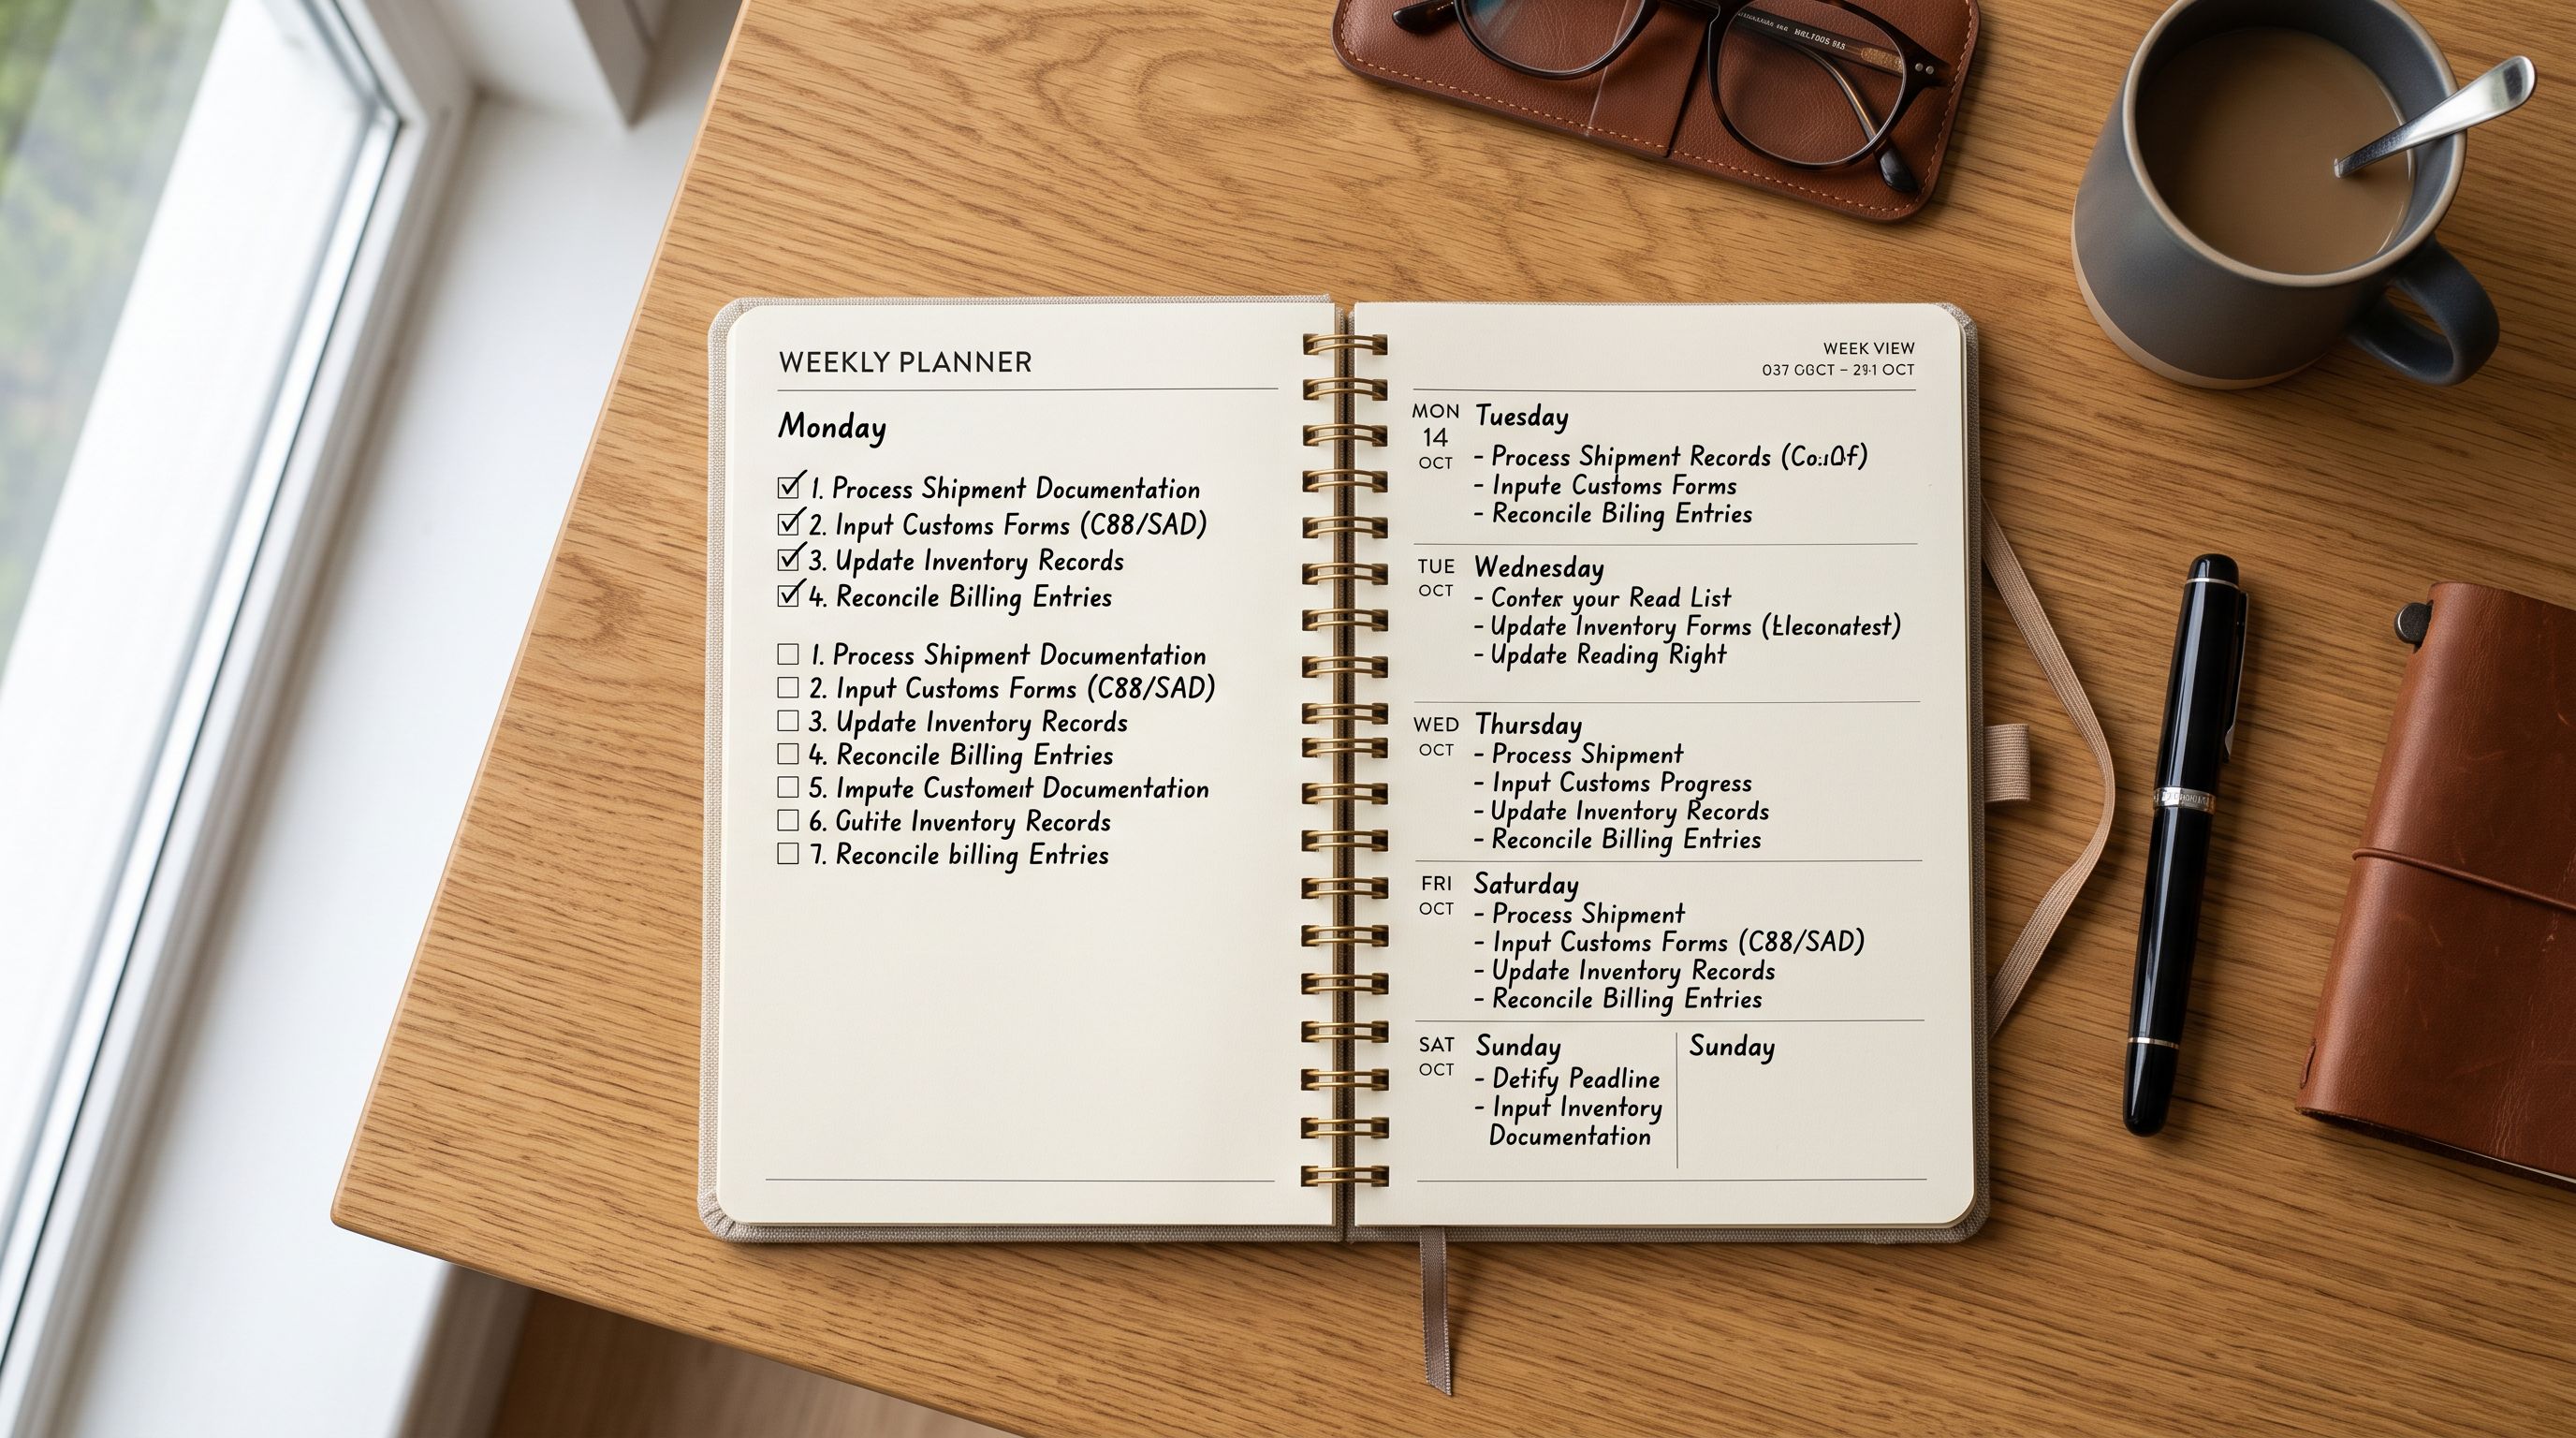 WEEKLY PLANNER
Monday
1. Process Shipment Documentation
2. Input Customs Forms (C88/SAD)
3. Update Inventory Records
4. Reconcile Billing Entries
1. Process Shipment Documentation
2. Input Customs Forms (C88/SAD)
3. Update Inventory Records
4. Reconcile Billing Entries
5. Impute Documentation
6. Inventory Records
7. Reconcile billing Entries
WEEK VIEW
OCT
MON
14
OCT
Tuesday
- Process Shipment Records
- Inpute Customs Forms
- Reconcile Biling Entries
TUE
OCT
Wednesday
- your Read List
- Update Inventory Forms
- Update Reading Right
WED
OCT
Thursday
- Process Shipment
- Input Customs Progress
- Update Inventory Records
- Reconcile Billing Entries
FRI
OCT
Saturday
- Process Shipment
- Input Customs Forms (C88/SAD)
- Update Inventory Records
- Reconcile Billing Entries
SAT
OCT
Sunday
- Detify Peadline
- Input Inventory
Documentation
Sunday